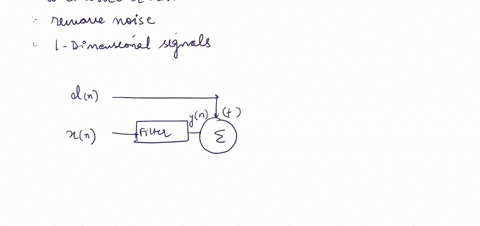 :- remove noise
:- 1-Dimensional signals
d(n)
y(n) (+)
x(n) Filter Σ